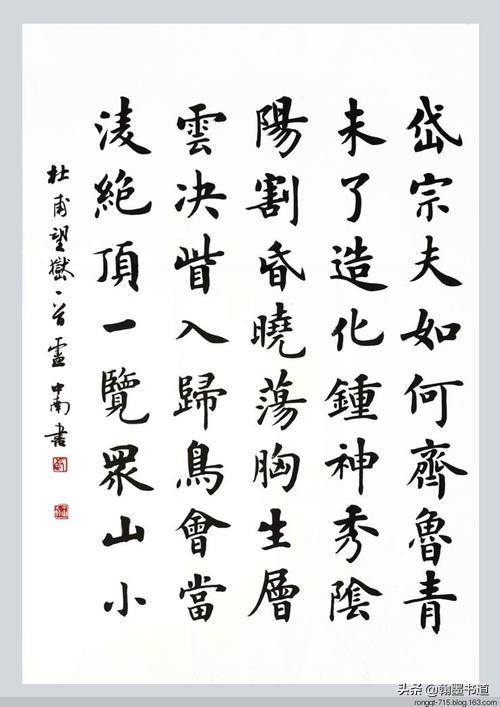 岱宗夫如何齊魯青
未了造化鍾神秀陰
陽割昏曉蕩胸生層
雲决眥入歸鳥會當
淩絶頂一覽眾山小
杜甫望嶽一首盧中南書
头条 @翰墨书道
rongqt-715.blog.163.com